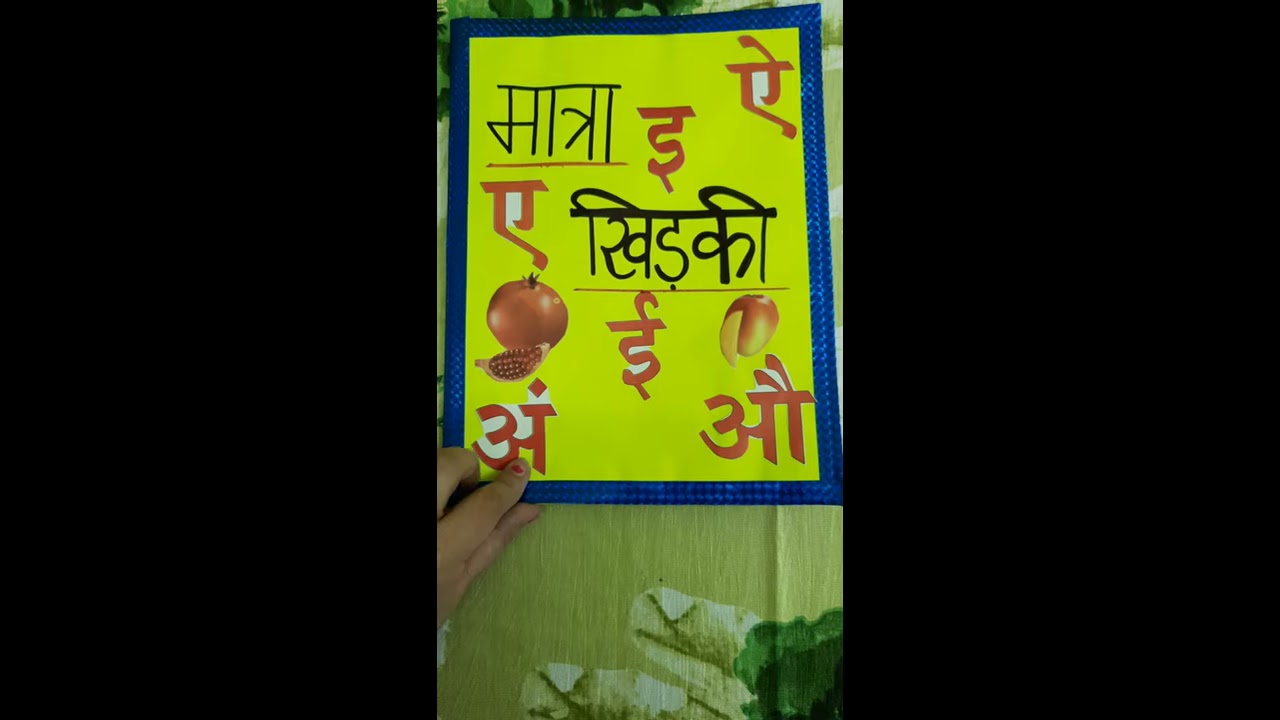 ऐ
मात्रा इ
ए
खिड़की
ई
अं औ